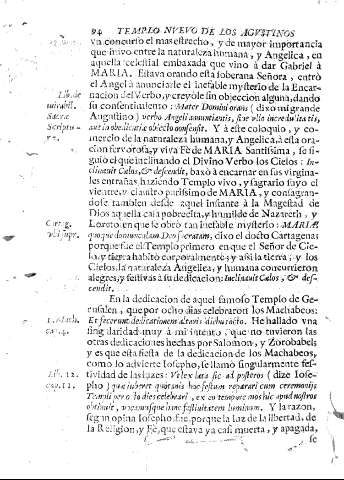 94 TEMPLO NVEVO DE LOS AGVSTINOS
va concurso el mas estrecho, y de mayor importancia
que huvo entre la naturaleza humana, y Angelica, en
aquella celestial embaxada que vino à dar Gabriel à
MARIA. Estava orando esta soberana Señora, entrò
el Angel à anunciarle el inefable mysterio de la Encar-
Lib. de nacion del Verbo, y creyòle sin objeccion alguna, dando
mirabil. su consentimiento: Mater Domini orans (dixo mi grande
Sacra Augustino) verbo Angeli annuntiantis, sine ullo incredulitatis,
Scriptu- aut inobedientiæ objectu consensit. Y à este coloquio, y co-
mercio de la naturaleza humana, y Angelica, à esta ora-
cion fervorosa, y viva Fè de MARIA Santissima, se si-
guiò el que inclinando el Divino Verbo los Cielos: In-
clinavit Cælos, & descendit, baxò à encarnar en sus virgina-
les entrañas, haziendo Templo vivo, y sagrario suyo el
vientre, y claustro purissimo de MARIA, y consagran-
dose tambien desde aquel instante à la Magestad de
Dios aquella casa pobrecita, y humilde de Nazareth, y
Cartag. Loreto en que se obrò tan inefable mysterio: MARIÆ
ubi supr. quoque domunculam Deo sacratam, dixo el docto Cartagena:
porque fue el Templo primero en que el Señor de Cie-
lo, y tierra habitò corporalmente; y assi la tierra, y los
Cielos, la naturaleza Angelica, y humana concurrieron
alegres, y festivas à su dedicacion: Inclinavit Cælos, & des-
cendit.
En la dedicacion de aquel famoso Templo de Ge-
rusalen, que por ocho dias celebraron los Machabeos:
1. Mach. Et fecerunt dedicationem altaris diebus octo. He hallado vna
cap. 4. singularidad muy à mi intento, que no tuvieron las
otras dedicaciones hechas por Salomon, y Zorobabel;
y es que esta fiesta de la dedicacion de los Machabeos,
como lo advierte Iosepho, se llamò singularmente fes-
Lib. 12. tividad de las luzes: Velex lata sic ad posteros (dize Iose-
cap. 11. pho) quæ iuberet quotanis hoc festum reparati cum ceremonijs
Templi per octo dies celebrari, ex eo tempore mos hic apud nostros
obtinuit, vocamusque hanc festivitatem luminum. Y la razon,
segun opina Iosepho, fue, porque la luz de la libertad, de
la Religion, y Fè, que estava ya casi muerta, y apagada,
se